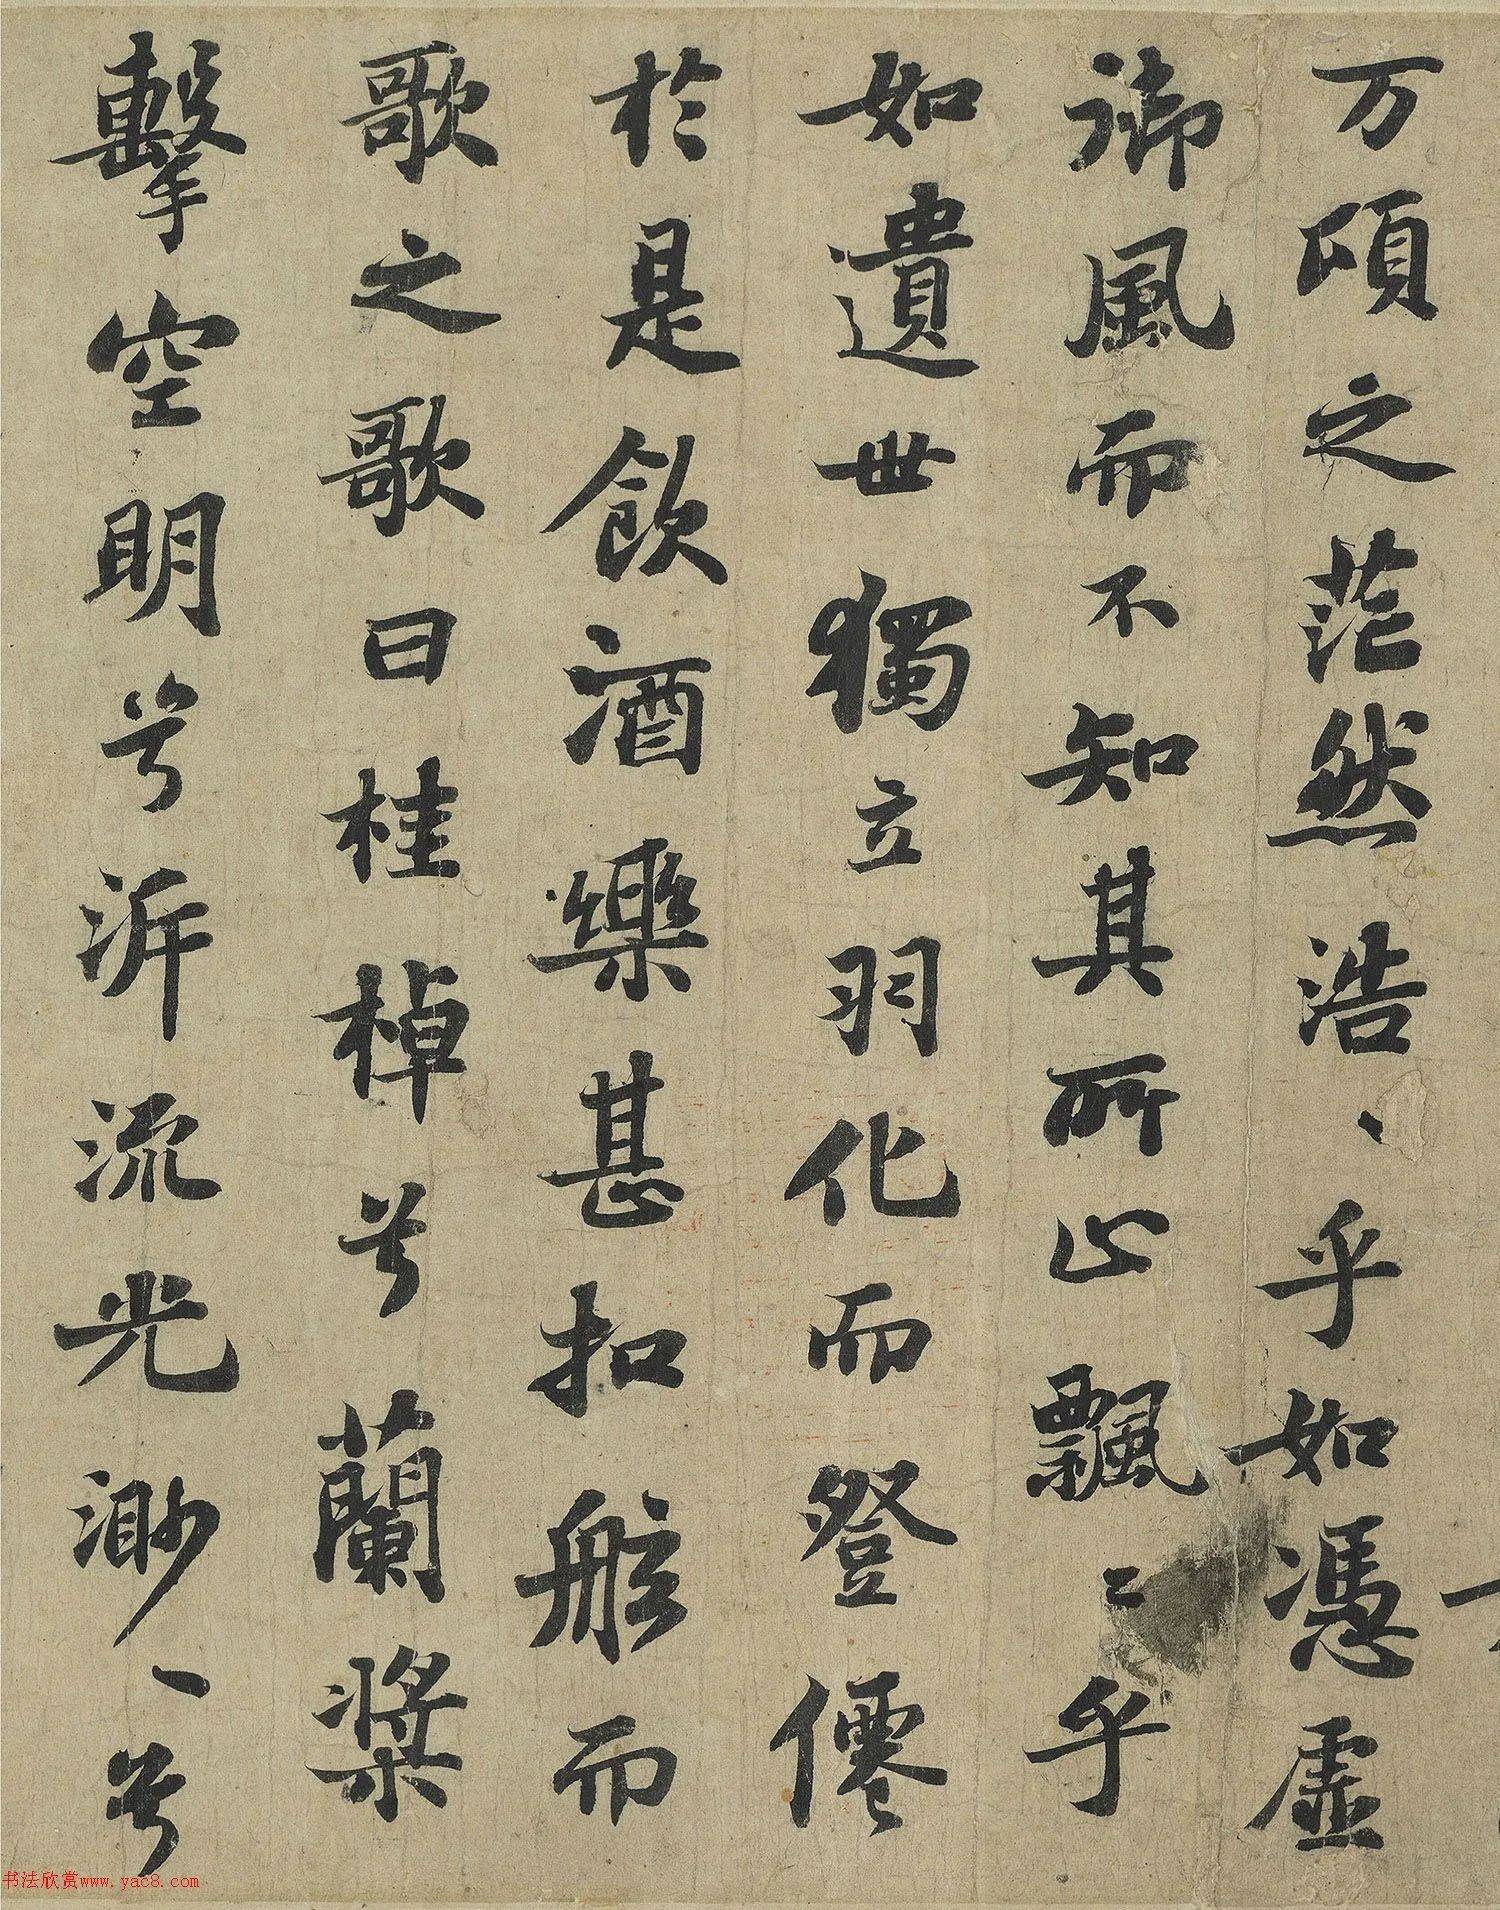 万頃之茫然浩、、乎如憑虛
御風而不知其所止飄〻乎
如遺世獨立羽化而登僊
於是飲酒樂甚扣舷而
歌之歌曰桂棹兮蘭槳
擊空明兮泝流光渺、兮
书法欣赏www.yac8.com